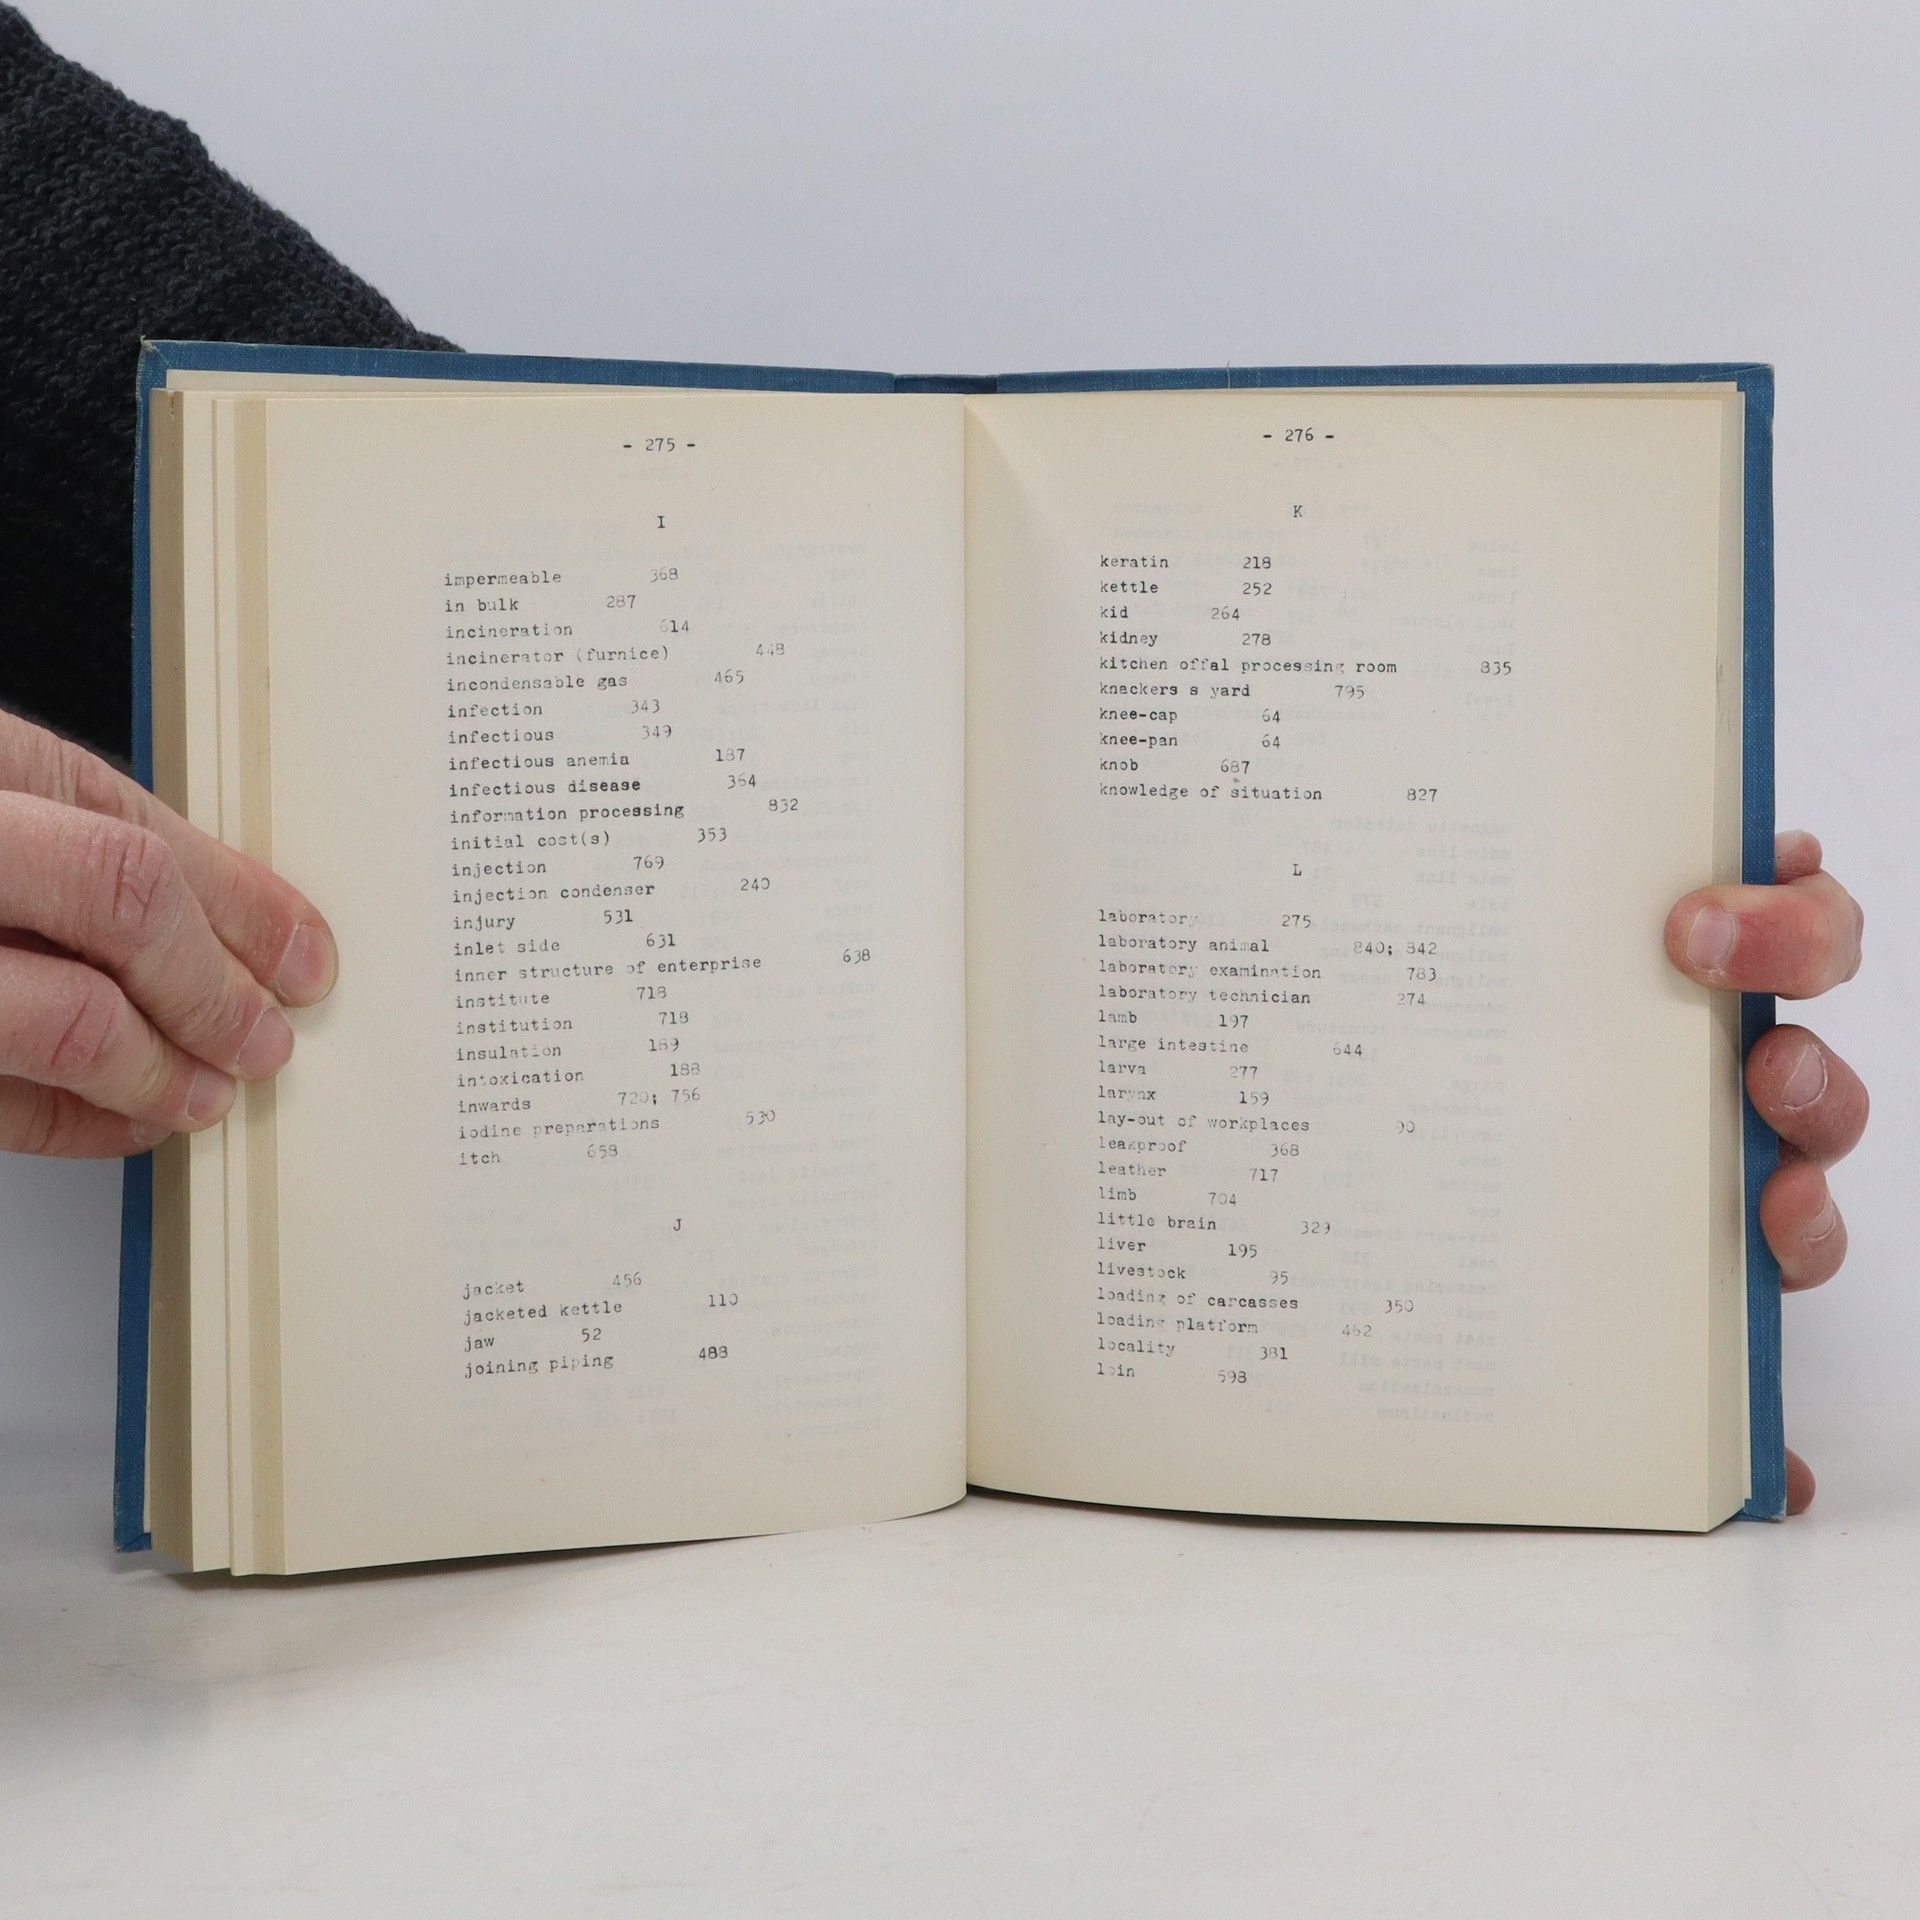 - 275 -
I
impermeable 368
in bulk 287
incineration 614
incinerator (furnice) 448
incondensable gas 465
infection 343
infectious 349
infectious anemia 187
infectious disease 364
information processing 832
initial cost(s) 353
injection 769
injection condenser 240
injury 531
inlet side 631
inner structure of enterprise 638
institute 718
institution 718
insulation 189
intoxication 188
inwards 720; 756
iodine preparations 530
itch 658
J
jacket 456
jacketed kettle 110
jaw 52
joining piping 488
- 276 -
K
keratin 218
kettle 252
kid 264
kidney 278
kitchen offal processing room 835
knackers s yard 795
knee-cap 64
knee-pan 64
knob 687
knowledge of situation 827
L
laboratory 275
laboratory animal 840; 842
laboratory examination 783
laboratory technician 274
lamb 197
large intestine 644
larva 277
larynx 159
lay-out of workplaces 90
leakproof 368
leather 717
limb 704
little brain 329
liver 195
livestock 95
loading of carcasses 350
loading platform 462
locality 381
loin 598